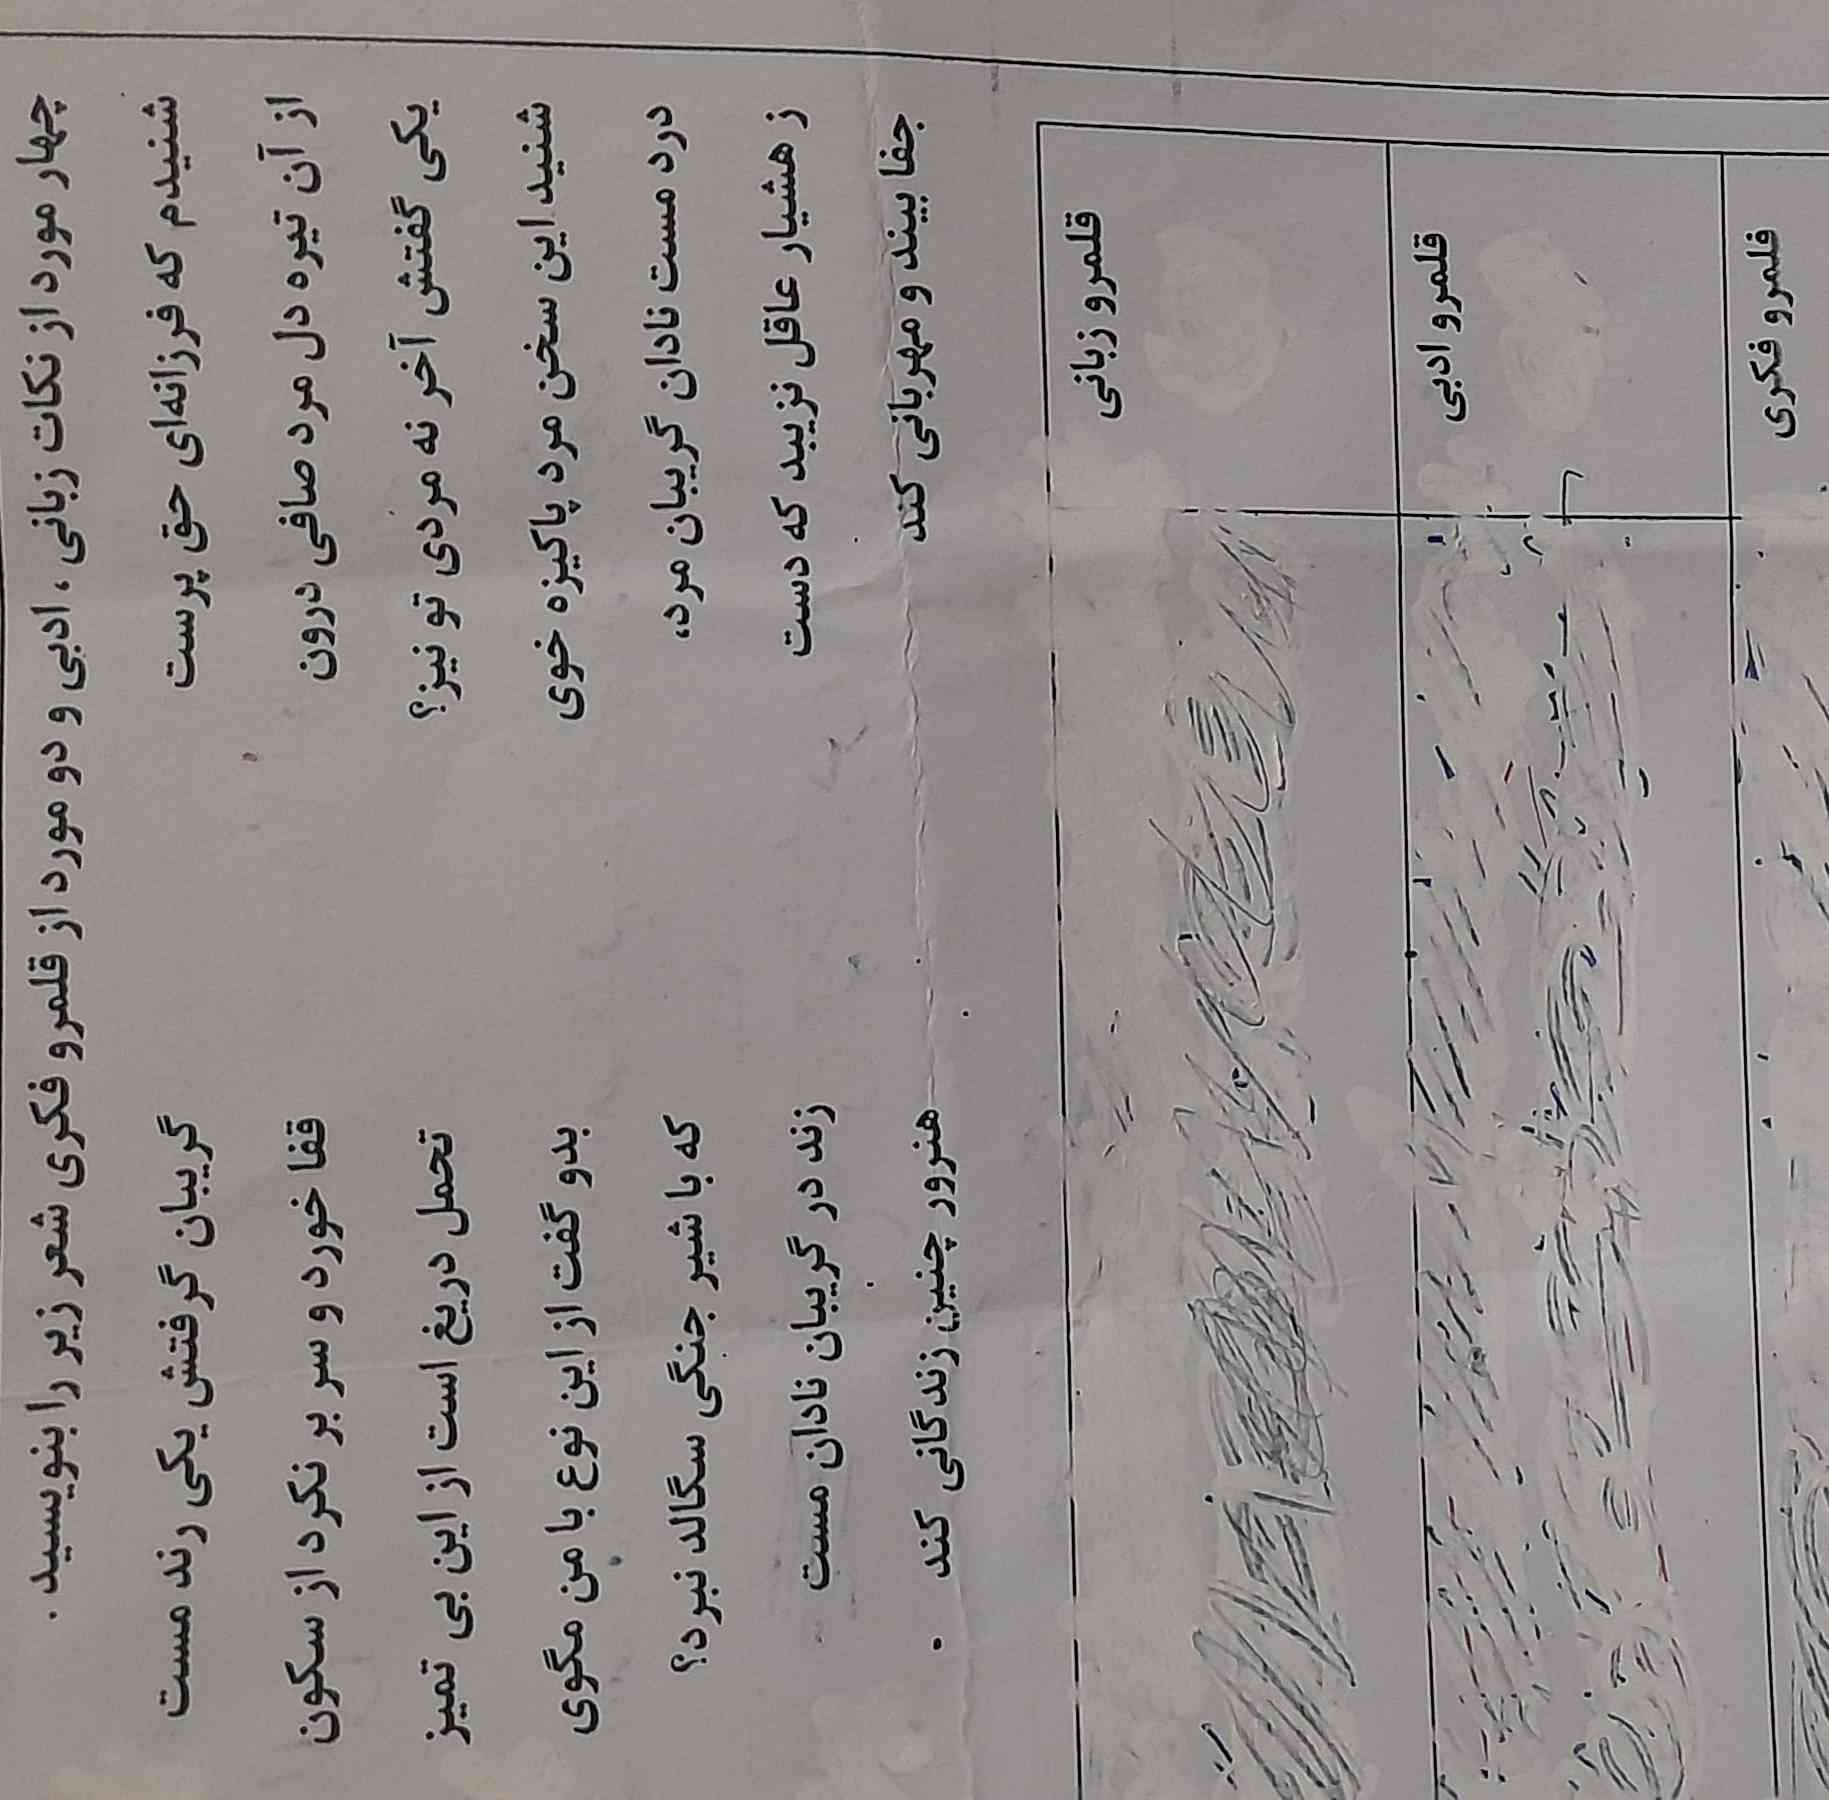 چهار مورد از نکات زبانی ، ادبی و دو مورد از قلمرو فکری شعر زیر را بنویسید .
شنیدم که فرزانه‌ای حق پرست گریبان گرفتش یکی رند مست
از آن تیره دل مرد صافی درون قفا خورد و سر بر نکرد از سکون
یکی گفتش آخر نه مردی تو نیز؟ تحمل دریغ است از این بی تمیز
شنید این سخن مرد پاکیزه خوی بدو گفت از این نوع با من مگوی
درد مست نادان گریبان مرد، که با شیر جنگی سگالد نبرد؟
ز هشیار عاقل نزیبد که دست زند در گریبان نادان مست
جفا بیند و مهربانی کند هنرور چنین زندگانی کند .
قلمرو زبانی
قلمرو ادبی
قلمرو فکری